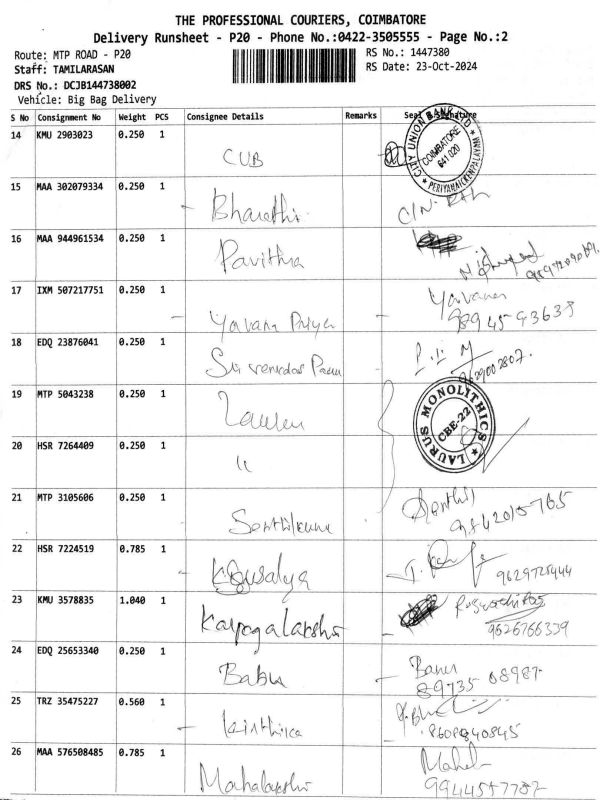 THE PROFESSIONAL COURIERS, COIMBATORE
Delivery Runsheet - P20 - Phone No.:0422-3505555 - Page No.:2
Route: MTP ROAD - P20
RS No.: 1447380
Staff: TAMILARASAN
RS Date: 23-Oct-2024
DRS No.: DCJB144738002
Vehicle: Big Bag Delivery
S No Consignment No Weight PCS Consignee Details Remarks Seal & Signature
14 KMU 2903023 0.250 1 CUB
CITY UNION BANK LTD
COIMBATORE
641 020
* PERIYANAICKENPALAYAM *
15 MAA 302079334 0.250 1 Bharathi
16 MAA 944961534 0.250 1 Pavithra
17 IXM 507217751 0.250 1 Yavana Priya Yavana
98945 93633
18 EDQ 23876041 0.250 1
19 MTP 5043238 0.250 1
LAURUS MONOLITHICS
CBE-22
20 HSR 7264409 0.250 1 "
21 MTP 3105606 0.250 1 Senthilkumar Senthil
22 HSR 7224519 0.785 1 Kousalya
9629725444
23 KMU 3578835 1.040 1
9626766339
24 EDQ 25653340 0.250 1 Babu
89735 08987
25 TRZ 35475227 0.560 1 Kirthika
26 MAA 576508485 0.785 1 Mahalakshmi
9944557787